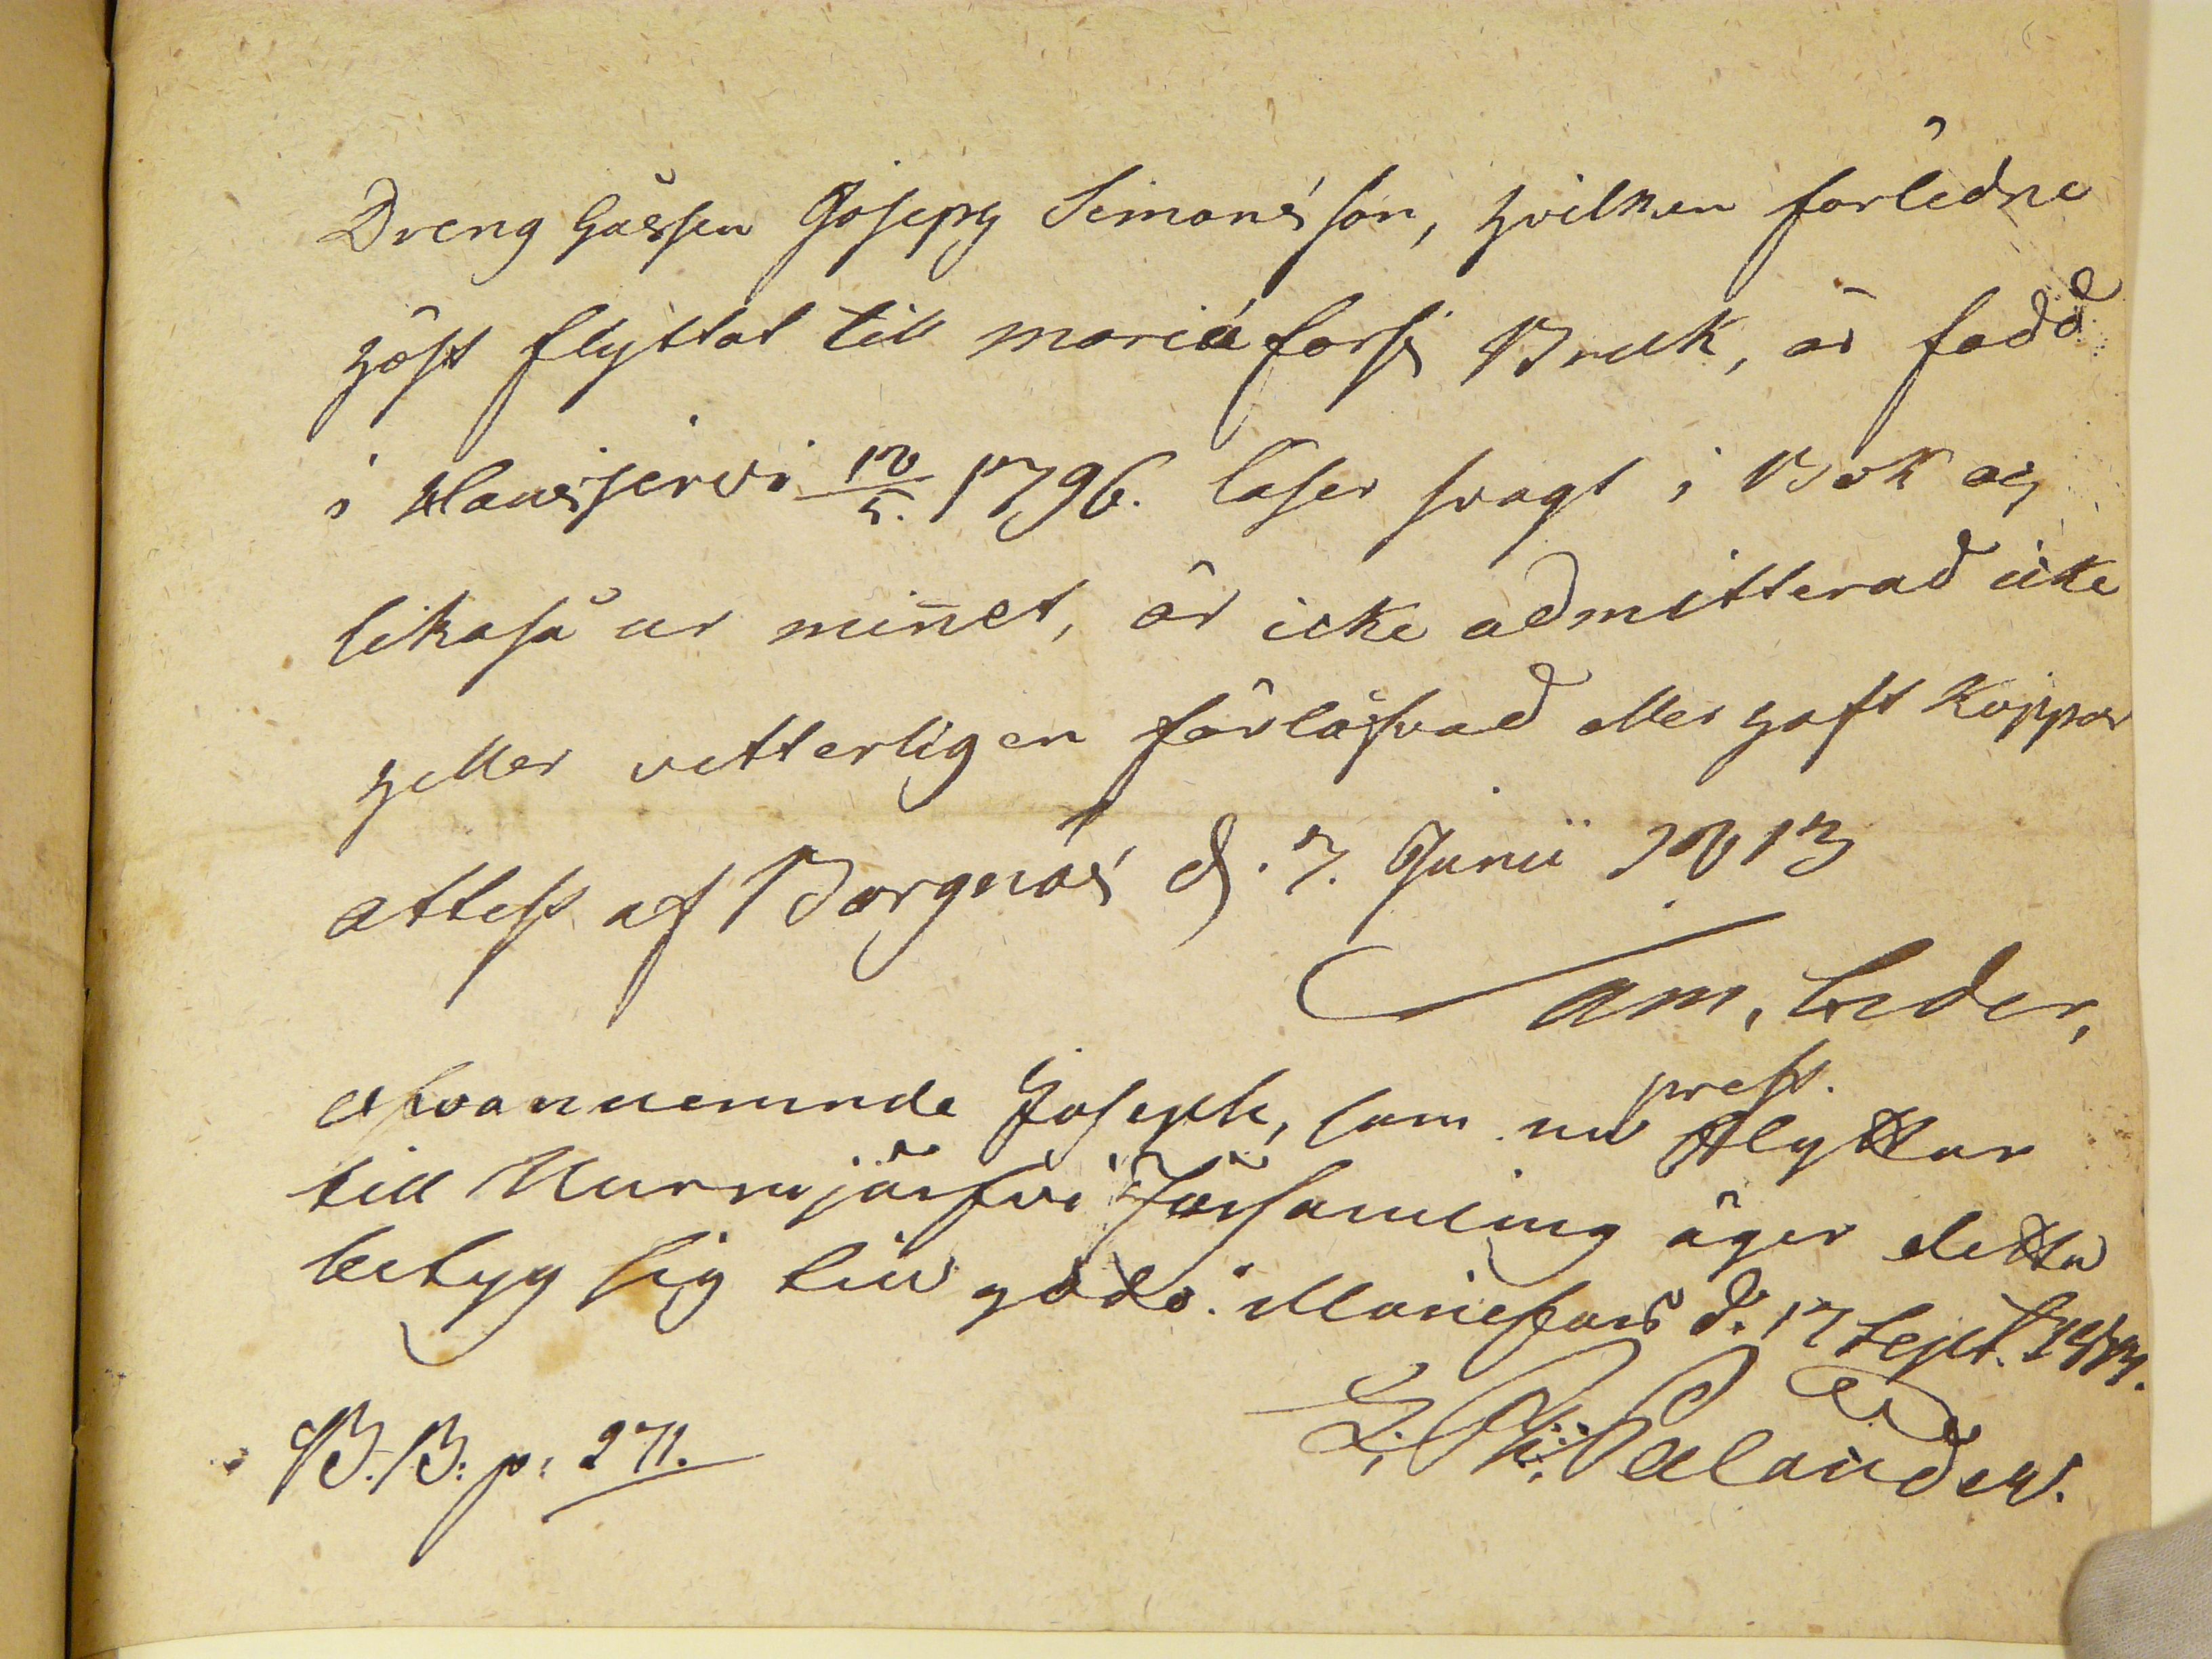 Dreng Gåssen Joseph Simonsson, hvilken förledne
höst flyttat till mariæfors Bruk, är född
i Hausjerwi 18/5. 1796. läser svagt i Bok och
likaså ur min̄et, är icke admitterad icke
heller vetterligen förlåfvad eller haft Koppor
attest. af Borgnäs d. 7. Junii 1813
Sam. Ceder,
prest.
Ofvannemnde Joseph, som nu flyttar
till Nurmijärfvi Församling äger detta
betyg sig till godo. Mariefors d. 17 Sept. 1813.
Palander.
B. B: p: 271.